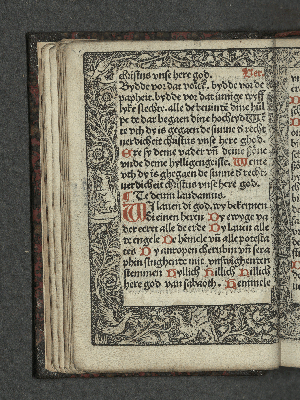 christus vnse here god. Ver.
Bydde vor dat volck. bydde vor de
papheit. bydde vor dat ynnige wyff
lyke slechte. alle de yenne dyne hul
pe de dar begaen dine hochtyd
te vth dy is gegaen de sunne d' recht
uerdicheit christus vnse here ghod.
Ere sy deme vader vn deme sone
vnde deme hylligen geiste. Wente
vth dy is ghegaen de sunne d' recht
uerdicheit christus vnse here god.
Te deum laudamus.
Wi lauen di god. wy bekennen
di einen heren Dy ewyge va
der eeret alle de erde Dy lauen alle
engele De hemele vn alle potesta
tes Dy anropen cherubin vn sera
phin stughende mit vnswighenten
stemmen Hyllich Hillich Hillich
here god van sabaoth. De hemele